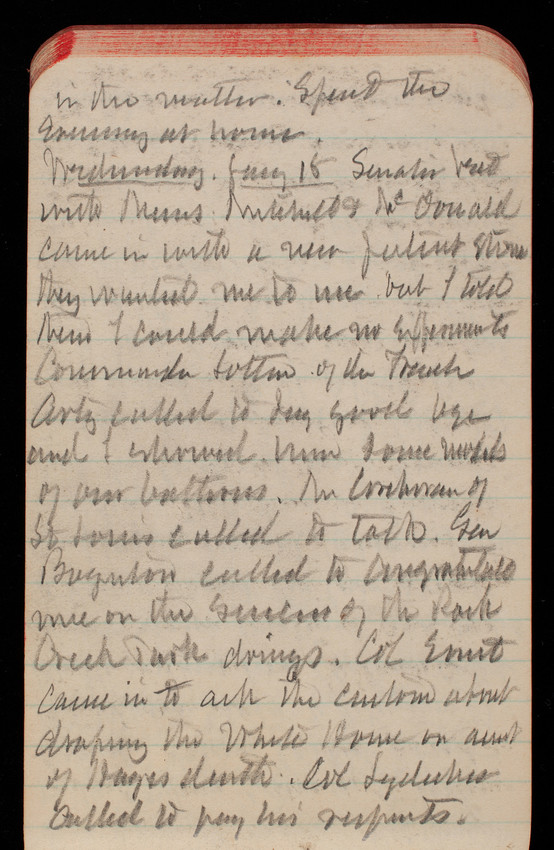 in the matter. Spent the
Evening at home.
Wednesday. Jany 18 Senator
with Messrs Mitchell & McDonald
came in with a new patent stone
they wanted me to use but I told
them I could make no Experiments
Commander of the French
Arty called to say good bye
and I showed him some models
of our batteries. Mr Corcoran of
St Louis called to talk. Gen
Boynton called to congratulate
me on the success of the Rock
Creek Park doings. Col Ernst
came in to ask the custom about
draping the White House on acnt
of Hayes death. Col
called to pay his respects.